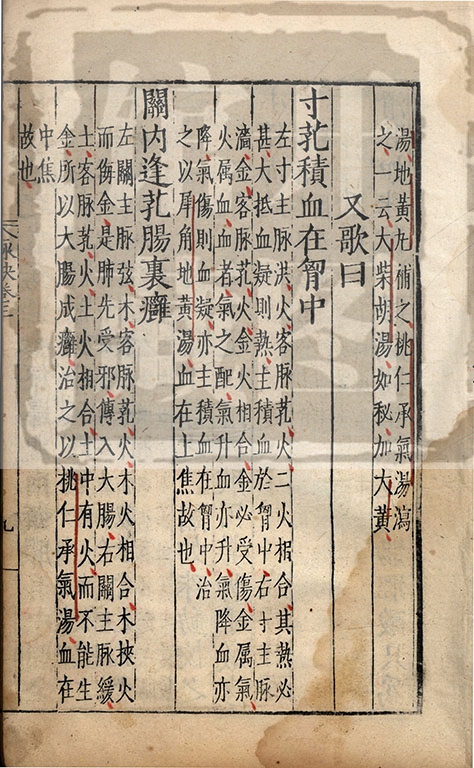 湯地黃丸補之桃仁承氣湯瀉
之一云大柴胡湯如秘加大黃
又歌曰
寸芤積血在胷中
左寸主脉洪火客脉芤火二火相合其熱必
甚大抵血凝則熱主積血於胷中右寸主脉
濇金客脉芤火金火相合金必受傷金属氣
火属血血者氣之配氣升血亦升氣降血亦
降氣傷則血凝亦主積血在胷中治
之以犀角地黃湯血在上焦故也
關内逢芤腸裏癰
左關主脉弦木客脉芤火木火相合木挾火
而侮金是肺先受邪傳入大腸右關主脉緩
土客脉芤火土火相合土中有火而不能生
金所以大腸成癰治之以桃仁承氣湯血在
中焦
故也
脉訣卷三
九